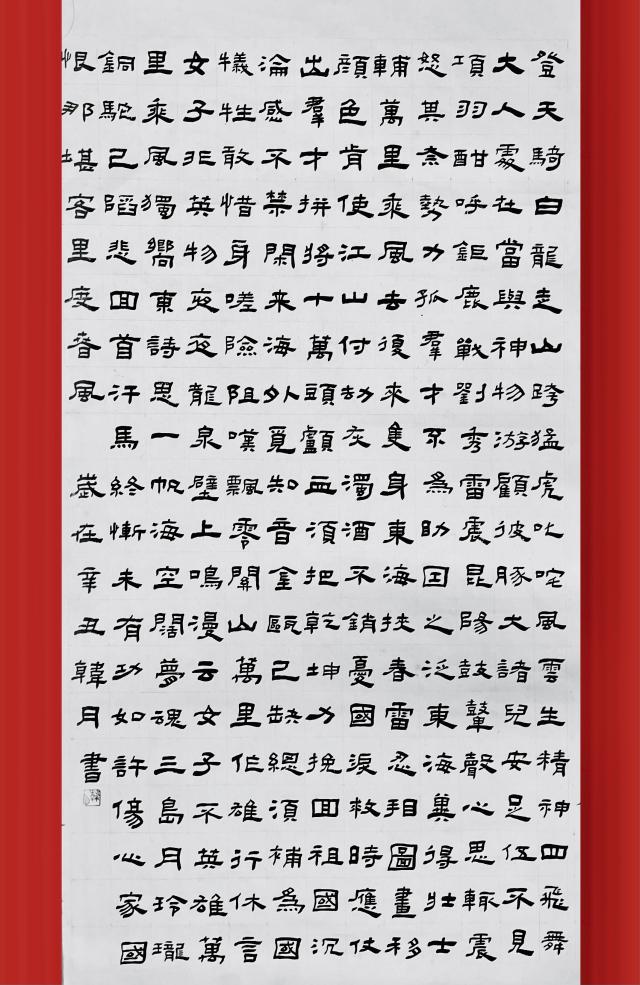 登天騎白龍走山跨猛虎叱咤風雲生精神四飛舞
大人處世當與神物游顧彼豚犬諸兒安足伍不見
項羽酣呼鉅鹿戰劉秀雷震昆陽鼓鼙聲心思輒震
怒其奈勢力孤羣才不為助因之泛東海冀得壯士
輔萬里乘風去復來隻身東海挾春雷忍看圖畫移
顏色肯使江山付劫灰濁酒不銷憂國淚救時應仗
出羣才拼將十萬頭顱血須把乾坤力挽回祖國沉
淪感不禁閑来海外覓知音金甌已缺總須補為國
犧牲敢惜身嗟險阻嘆飄零關山萬里作雄行休言
女子非英物夜夜龍泉壁上鳴漫云女子不英雄萬
里乘風獨嚮東詩思一帆海空闊夢魂三島月玲瓏
銅駝已陷悲回首汗馬終慚未有功如許傷心家國
恨那堪客里度春風 歲在辛丑韓月書